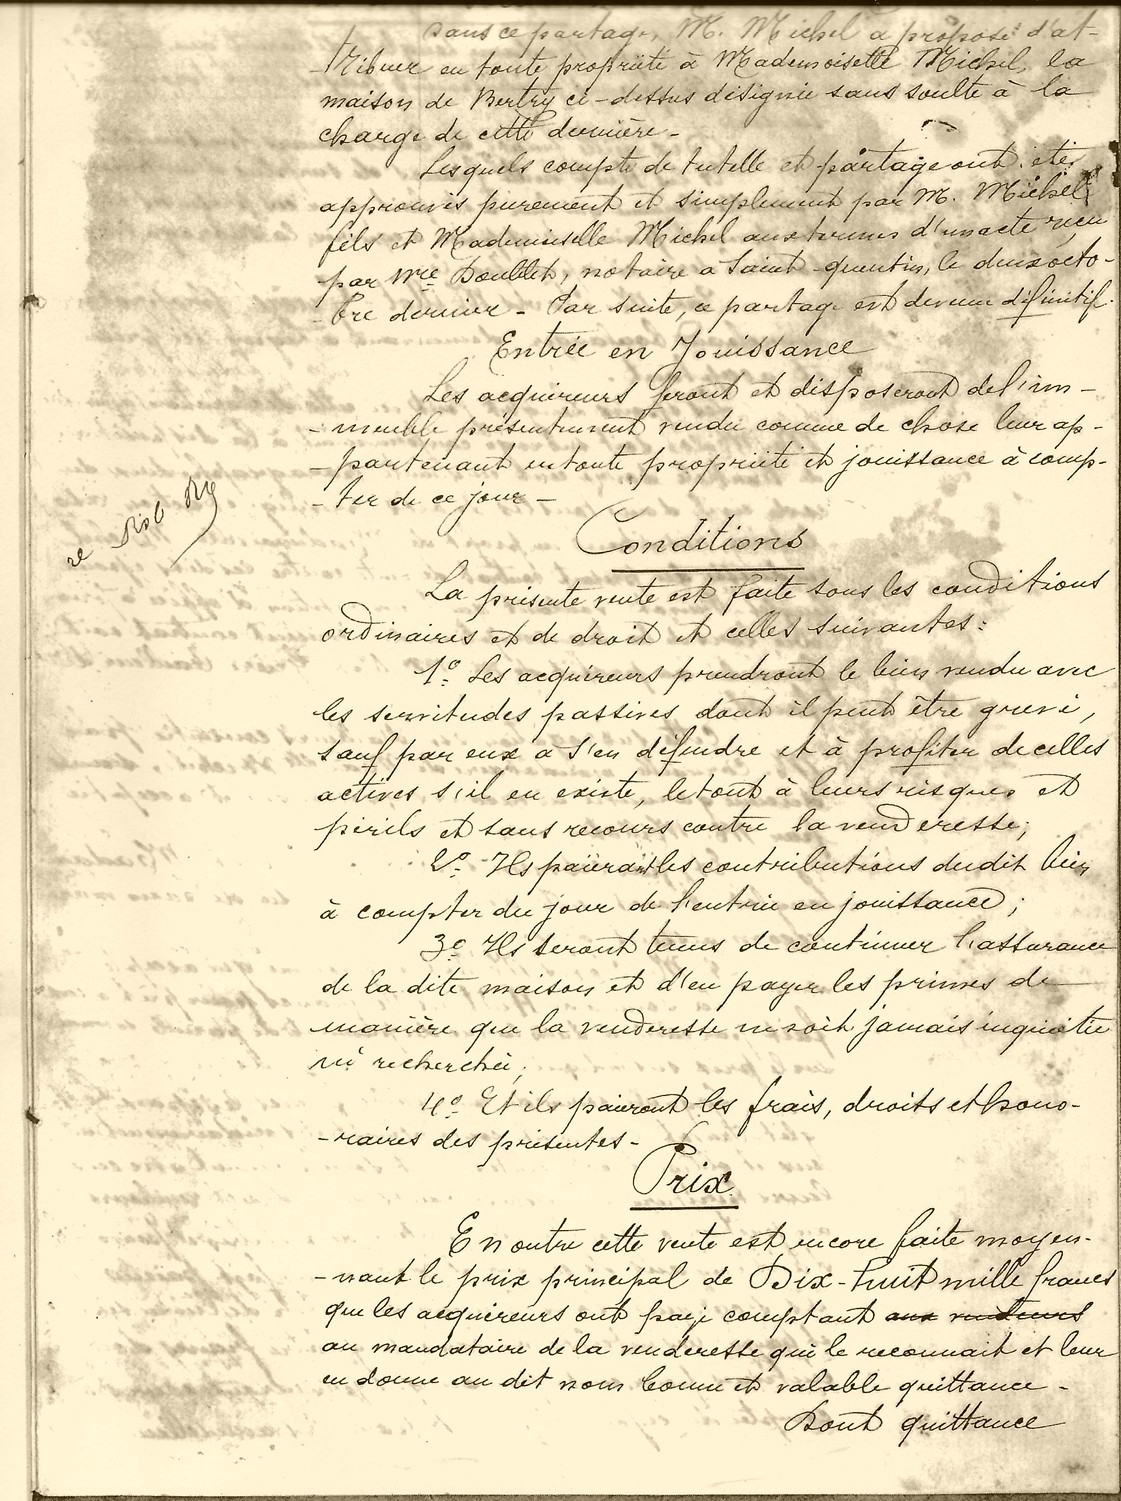 Dans ce partage, M. Michel a proposé d'at-
-tribuer en toute propriété à Mademoiselle Michel, la
maison de Bertry ci-dessus désignée sans soulte à la
charge de cette dernière -
Lesquels compte de tutelle et partage ont été
approuvés purement et simplement par M. Michel
fils et Mademoiselle Michel aux termes d'un acte reçu
par Mce Doublet, notaire à Saint-quentin, le deux octo-
-bre dernier - Par suite, ce partage est devenu définitif.
Entrée en Jouissance
Les acquéreurs feront et disposeront de l'im-
-meuble présentement vendu comme de chose leur ap-
-partenant en toute propriété et jouissance à comp-
-ter de ce jour -
Conditions
La présente vente est faite sous les conditions
ordinaires et de droit et celles suivantes:
1º Les acquéreurs prendront le bien vendu avec
les servitudes passives dont il peut être grevé,
sauf par eux à s'en défendre et à profiter de celles
actives s'il en existe, le tout à leurs risques et
périls et sans recours contre la venderesse;
2º Ils paieront les contributions du dit bien
à compter du jour de l'entrée en jouissance;
3º Ils seront tenus de continuer l'assurance
de la dite maison et d'en payer les primes de
manière que la venderesse ne soit jamais inquiétée
ni recherchée;
4º Et ils paieront les frais, droits et hono-
-raires des présentes -
Prix
En outre cette vente est encore faite moyen-
-nant le prix principal de Dix-huit mille francs
que les acquéreurs ont payé comptant aux vendeurs
au mandataire de la venderesse qui le reconnait et leur
en donne au dit nom bonne et valable quittance -
Dont quittance